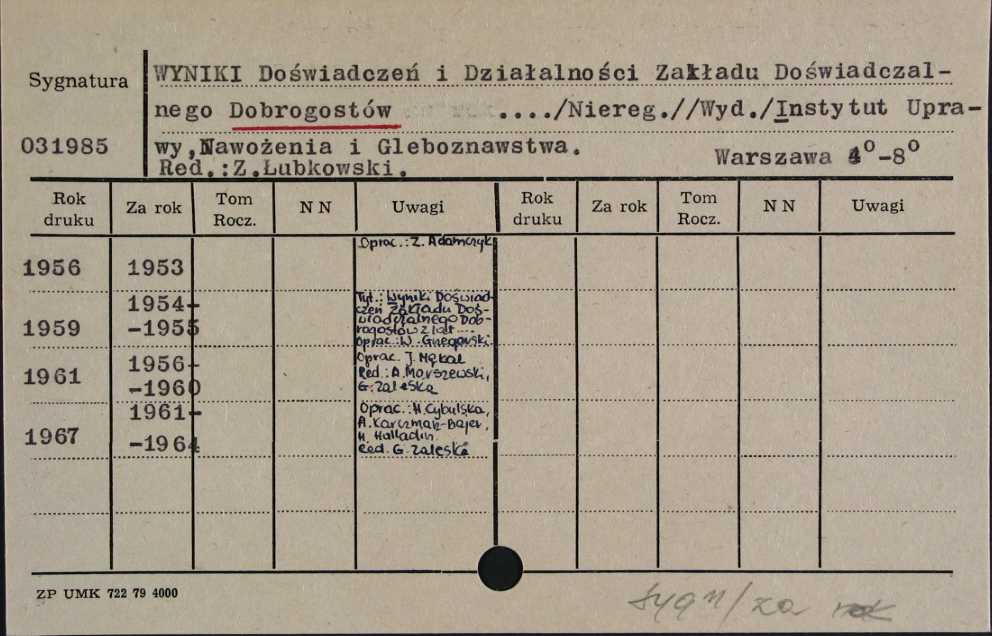 Sygnatura
WYNIKI Doświadczeń i Działalności Zakładu Doświadczal-
nego Dobrogostów ..../Niereg.//Wyd./Instytut Upra-
031985
wy,Nawożenia i Gleboznawstwa.
Warszawa 4°-8°
Red.:Z.Łubkowski.
Rok druku Za rok Tom Rocz. N N Uwagi Rok druku Za rok Tom Rocz. N N Uwagi
Oprac.: Z. Adamczyk
1956 1953
1954-
-1955
1959
Tyt.: Wyniki Doświad-
czeń Zakładu Doś-
wiadczalnego Dob-
rogostów z lat ....
Oprac.: W.
1956-
-1960
1961
Oprac. J. Mękal
Red.: A. Marszewski,
G. Zaleska
1961-
-1964
1967
Oprac.: H. Cybulska,
A. Karczmar-Bajer,
H. Halladin.
Red. G. Zaleska
ZP UMK 722 79 4000
sygn/za rok